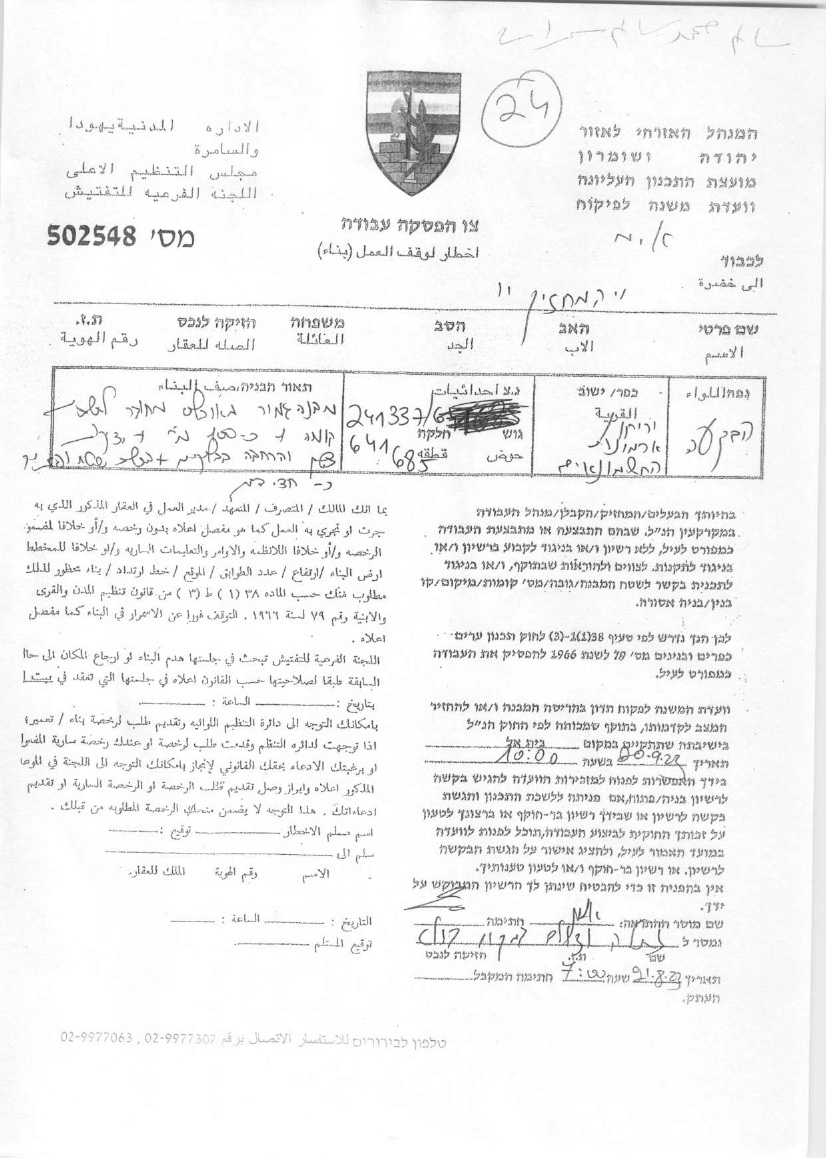 24
המנהל האזרחי לאזור
יהודה ושומרון
מועצת התכנון העליונה
וועדת משנה לפיקוח
الاداره المدنية يهودا
والسامرة
مجلس التنظيم الاعلى
اللجنة الفرعيه للتفتيش
צו הפסקה עבודה
اخطار لوقف العمل (بناء)
מס׳ 502548
לכבוד
الى حضرة
המחזיק
שם פרטי האב הסב משפחה הזיקה לנכס ת.ז.
الاسم الاب الجد العائلة الصله للعقار رقم الهوية
נפה/اللواء
הבקעה
כפר/ ישוב
القرية
יריחו
ארמונות
החשמונאים
נ.צ احداثيات
241337/
גוש חלקה
حوض قطعه
641685
תאור הבניה/وصف البناء
בהיותך הבעלים/המחזיק/הקבלן/מנהל העבודה
במקרקעין הנ״ל, שבהם התבצעה או מתבצעת העבודה
כמפורט לעיל, ללא רשיון ו/או בניגוד לקבוע ברשיון ו/או
בניגוד לתקנות, לצווים ולהוראות שבתוקף, ו/או בניגוד
לתכנית בקשר לשטח המבנה/גובה/מס׳ קומות/מיקום/קו
בנין/בניה אסורה.
לכן הנך נדרש לפי סעיף 38(1)-(3) לחוק תכנון ערים
כפרים ובנינים מס׳ 79 לשנת 1966 להפסיק את העבודה
כמפורט לעיל.
וועדת המשנה לפקוח תדון בהריסת המבנה ו/או להחזיר
המצב לקדמותו, בתוקף סמכותה לפי החוק הנ״ל
בישיבתה שתתקיים במקום בית אל
תאריך 20.9.23 בשעה 10:00
בידך האפשרות לפנות למזכירות הוועדה להגיש בקשה
לרשיון בניה/פתוח, אם פניתה ללשכת התכנון והגשת
בקשה לרשיון או שבידך רשיון בר-תוקף או ברצונך לטעון
על זכותך החוקית לביצוע העבודה, תוכל לפנות לוועדה
במועד האמור לעיל, ולהציג אישור על הגשת הבקשה
לרשיון, או רשיון בר-תוקף ו/או לטעון טענותיך.
אין בהפניה זו כדי להבטיח שינתן לך הרשיון המבוקש על
ידך.
שם מוסר ההתראה: חתימה:
נמסר ל
שם ת.ז. הזיקה לנכס
תאריך 21.8.23 שעה 7:00 חתימה המקבל
העתק.
بما انك المالك / المتصرف / المتعهد / مدير العمل في العقار المذكور الذي به
جرت او تجري به العمل كما هو مفصل اعلاه بدون رخصه و/أو خلافا لمضمون
الرخصه و/أو خلافا للانظمه والاوامر والتعليمات الساريه و/او خلافا للمخطط
ارض البناء /ارتفاع / عدد الطوابق / الموقع / خط ارتداد / بناء محظور لذلك
مطلوب منك حسب الماده ٣٨ (١) ط (٣) من قانون تنظيم المدن والقرى
والابنية رقم ٧٩ لسنة ١٩٦٦ . التوقف فورا عن الاستمرار في البناء كما مفصل
اعلاه .
اللجنة الفرعية للتفتيش تبحث في جلستها هدم البناء او ارجاع المكان الى حا
السابقة طبقا لصلاحيتها حسب القانون اعلاه في جلستها التي تعقد في بيت ا
بتاريخ: الساعة :
بامكانك التوجه الى دائرة التنظيم اللوائيه وتقديم طلب لرخصة بناء / تعمير؛
اذا توجهت لدائره التنظم وقدمت طلب لرخصة او عندك رخصة سارية المفعو
او برغبتك الادعاء بحقك القانوني لإنجاز بامكانك التوجه الى اللجنة في الموعا
المذكور اعلاه وابراز وصل تقديم طلب الرخصة او الرخصة السارية او تقديم
ادعاءاتك . هذا التوجه لا يضمن منحك الرخصة المطلوبه من قبلك .
اسم مسلم الاخطار توقيع :
سلم الى
الاسم رقم الهوية المالك للعقار
التاريخ : الساعة :
توقيع المستلم
טלפון לבירורים للاستفسار الاتصال برقم 02-9977307 , 02-9977063